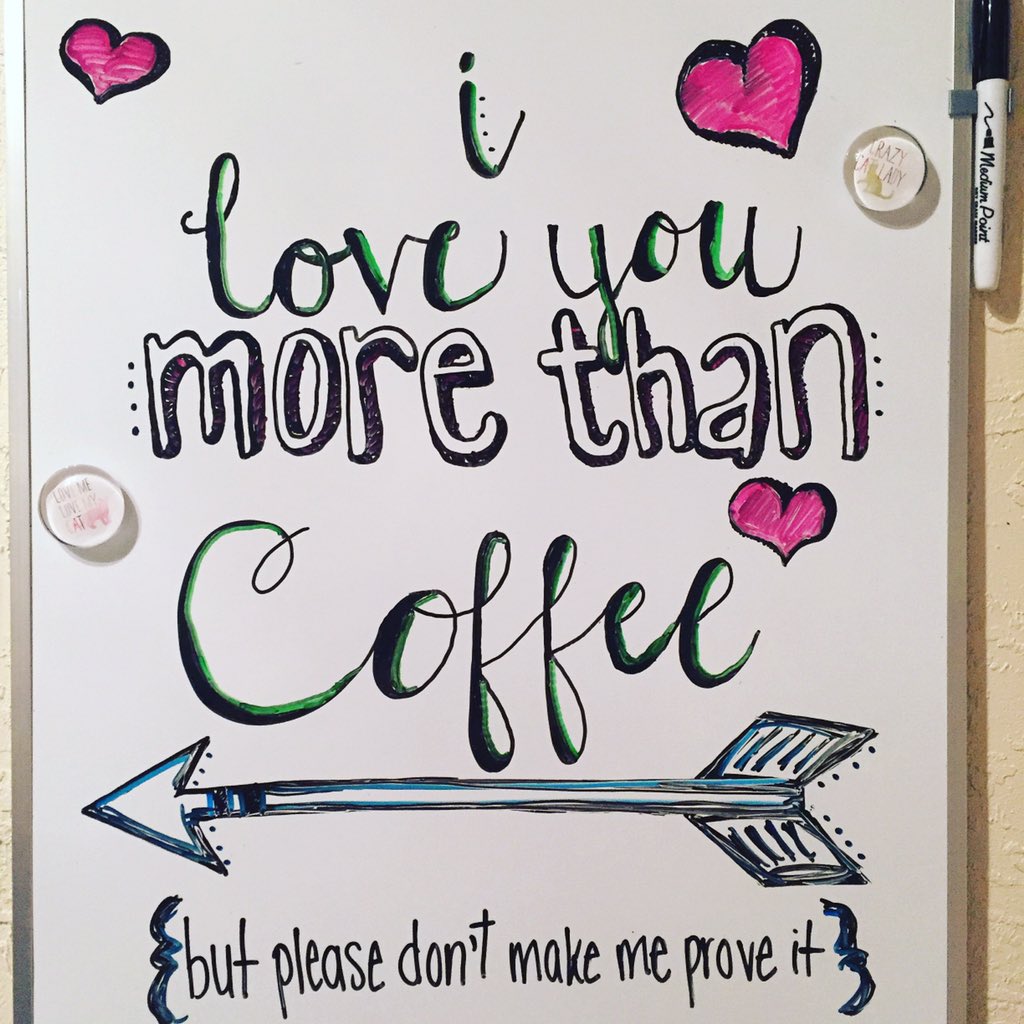 i
love you
more than
Coffee
{but please don't make me prove it}
CRAZY
CAT LADY
LOVE ME
LOVE MY
CAT
Medium Point